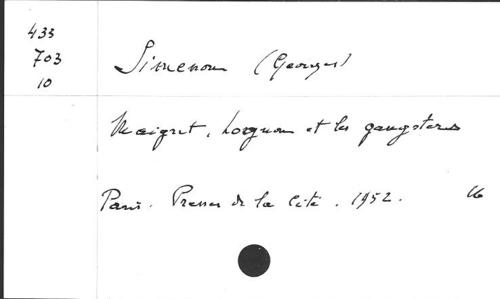 433
703
10
Simenon (Georges)
Maigret, Lognon et les gangsters
Paris. Presses de la Cité. 1952.